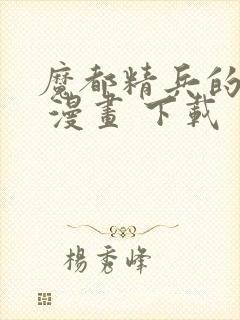 魔都精兵的
漫畫 下載
楊秀峰